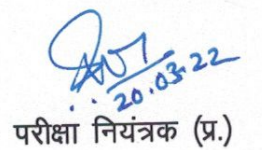 20.03.22
परीक्षा नियंत्रक (प्र.)